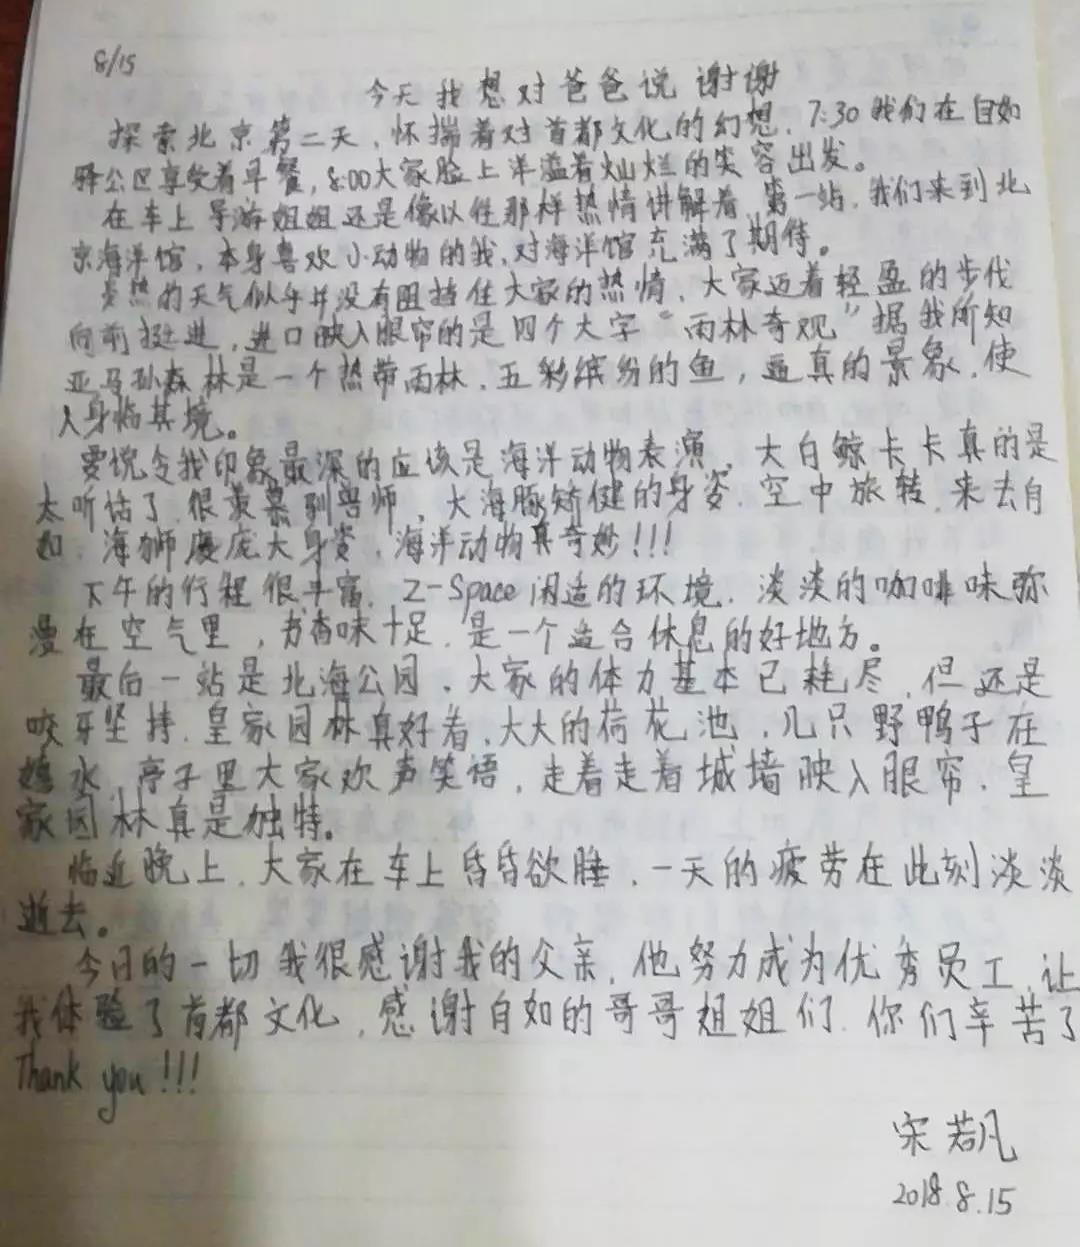 8/15
今天我想对爸爸说谢谢
探索北京第二天，怀揣着对首都文化的幻想，7:30我们在自如
驿公区享受着早餐，8:00大家脸上洋溢着灿烂的笑容出发。
在车上导游姐姐还是像以往那样热情讲解着，第一站，我们来到北
京海洋馆，本身喜欢小动物的我，对海洋馆充满了期待。
炎热的天气似乎并没有阻挡住大家的热情，大家迈着轻盈的步伐
向前挺进，进口映入眼帘的是四个大字“雨林奇观”据我所知
亚马孙森林是一个热带雨林，五彩缤纷的鱼，逼真的景象，使
人身临其境。
要说令我印象最深的应该是海洋动物表演，大白鲸卡卡真的是
太听话了，很羡慕驯兽师，大海豚矫健的身姿，空中旅转，来去自
如，海狮庞大身姿，海洋动物真奇妙!!!
下午的行程很丰富，Z-Space闲适的环境，淡淡的咖啡味弥
漫在空气里，书香味十足，是一个适合休息的好地方。
最后一站是北海公园，大家的体力基本已耗尽，但还是
咬牙坚持，皇家园林真好看，大大的荷花池，几只野鸭子在
嬉水，亭子里大家欢声笑语，走着走着城墙映入眼帘，皇
家园林真是独特。
临近晚上，大家在车上昏昏欲睡，一天的疲劳在此刻淡淡
逝去。
今日的一切我很感谢我的父亲，他努力成为优秀员工，让
我体验了首都文化，感谢自如的哥哥姐姐们，你们辛苦了
Thank you!!!
宋若凡
2018.8.15